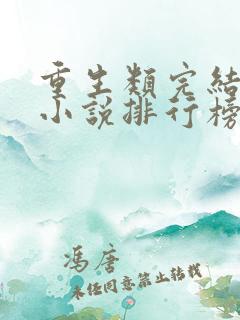 重生類完結
小說排行榜
馮唐
未經同意禁止轉載